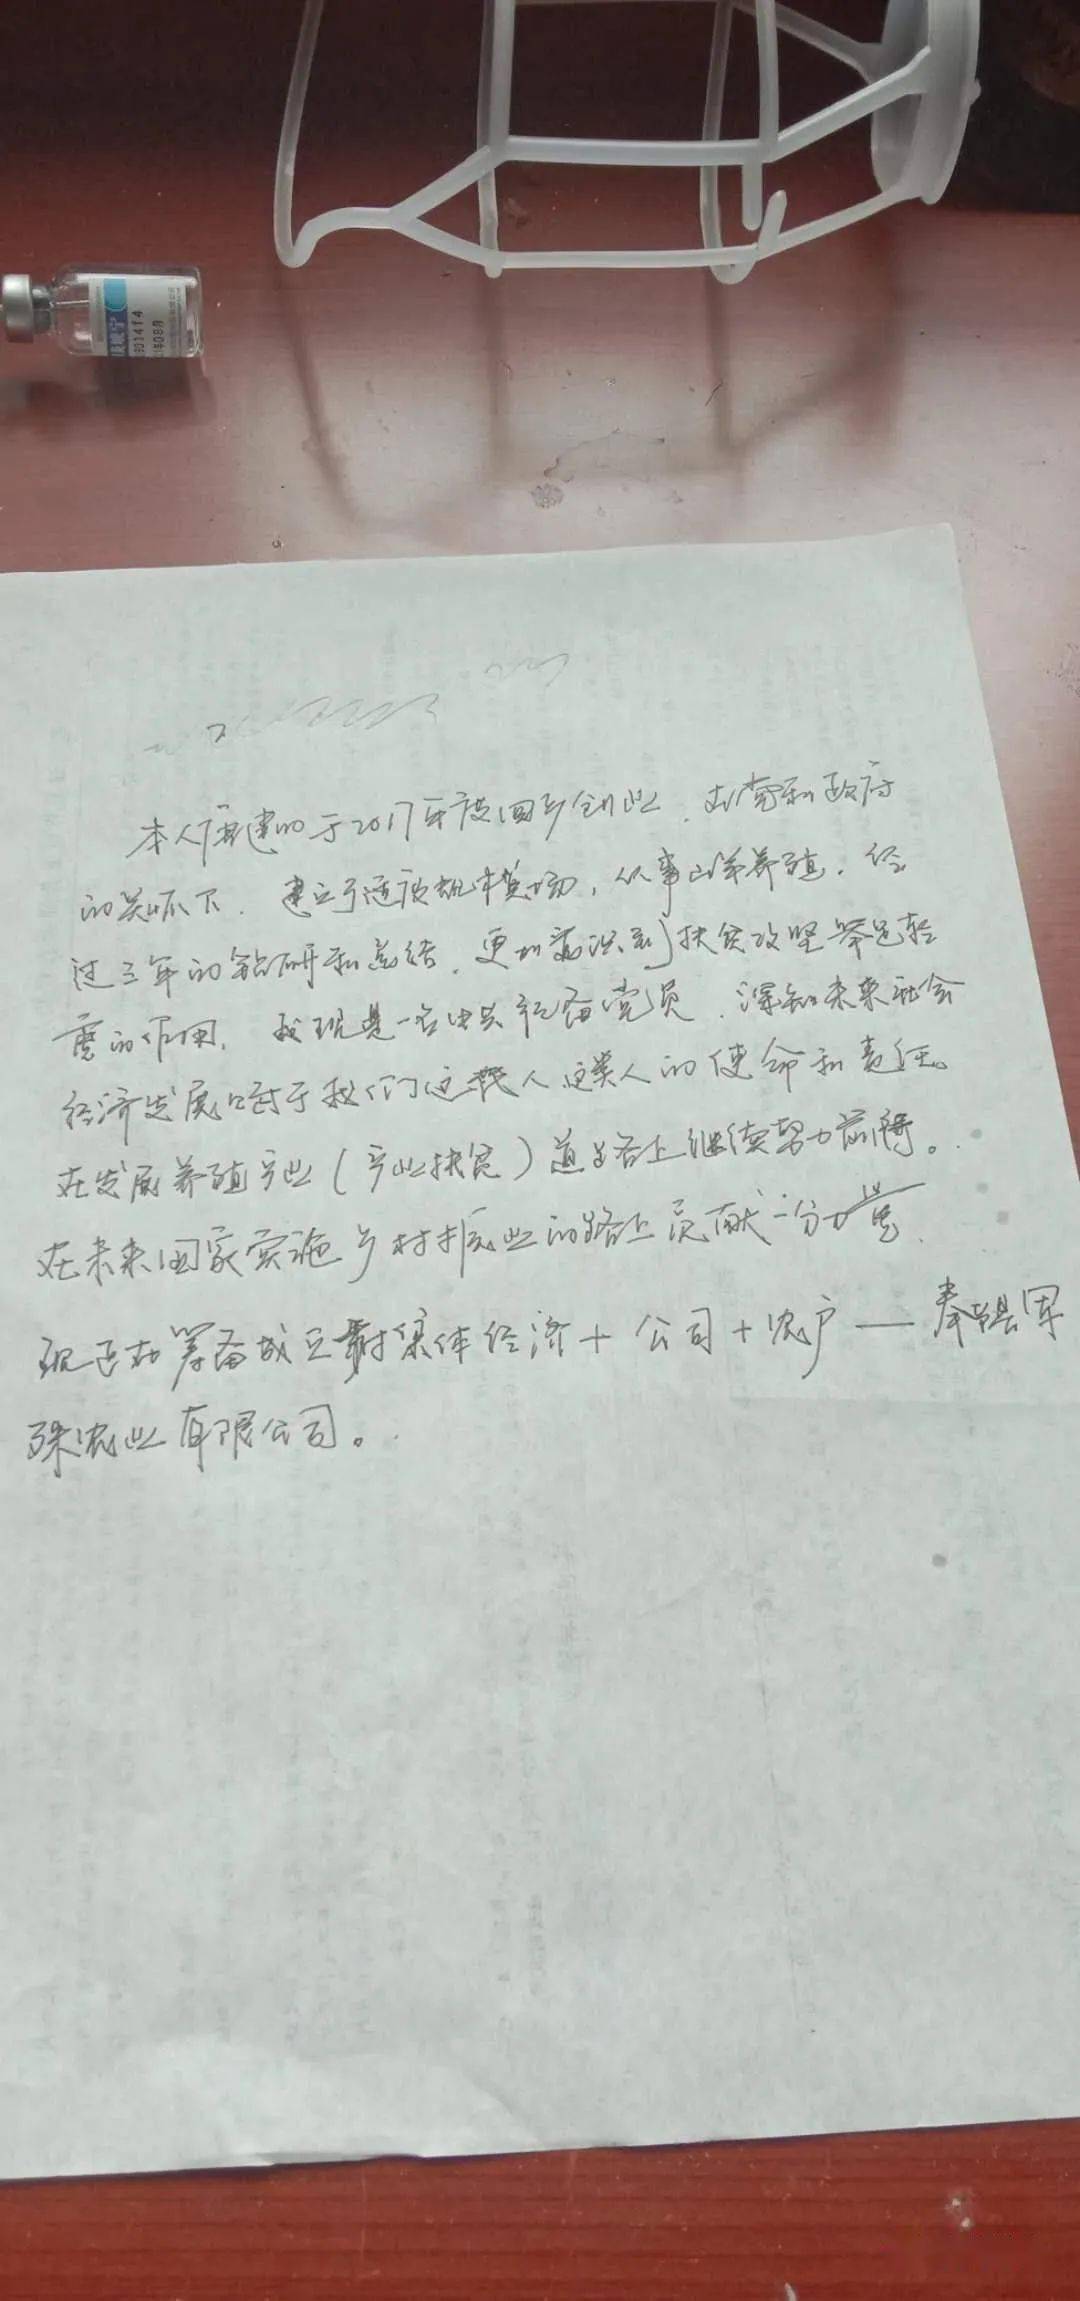 康宁
301414
21608月
本人 建 于2017年度回乡创业,在党和政府
的关怀下,建立了 养殖场,从事山羊养殖,经
过三年的钻研和总结,更加意识到扶贫攻坚举足轻
重的作用,我现是一名中共预备党员,深知未来社会
经济发展对于我们这 人这类人的使命和责任。
在发展养殖产业(产业扶贫)道路上继续努力前行。
在未来国家实施乡村振兴的路上贡献一份力量
现正在筹备成立 村集体经济+公司+农户—奉节县军
殊农业有限公司。